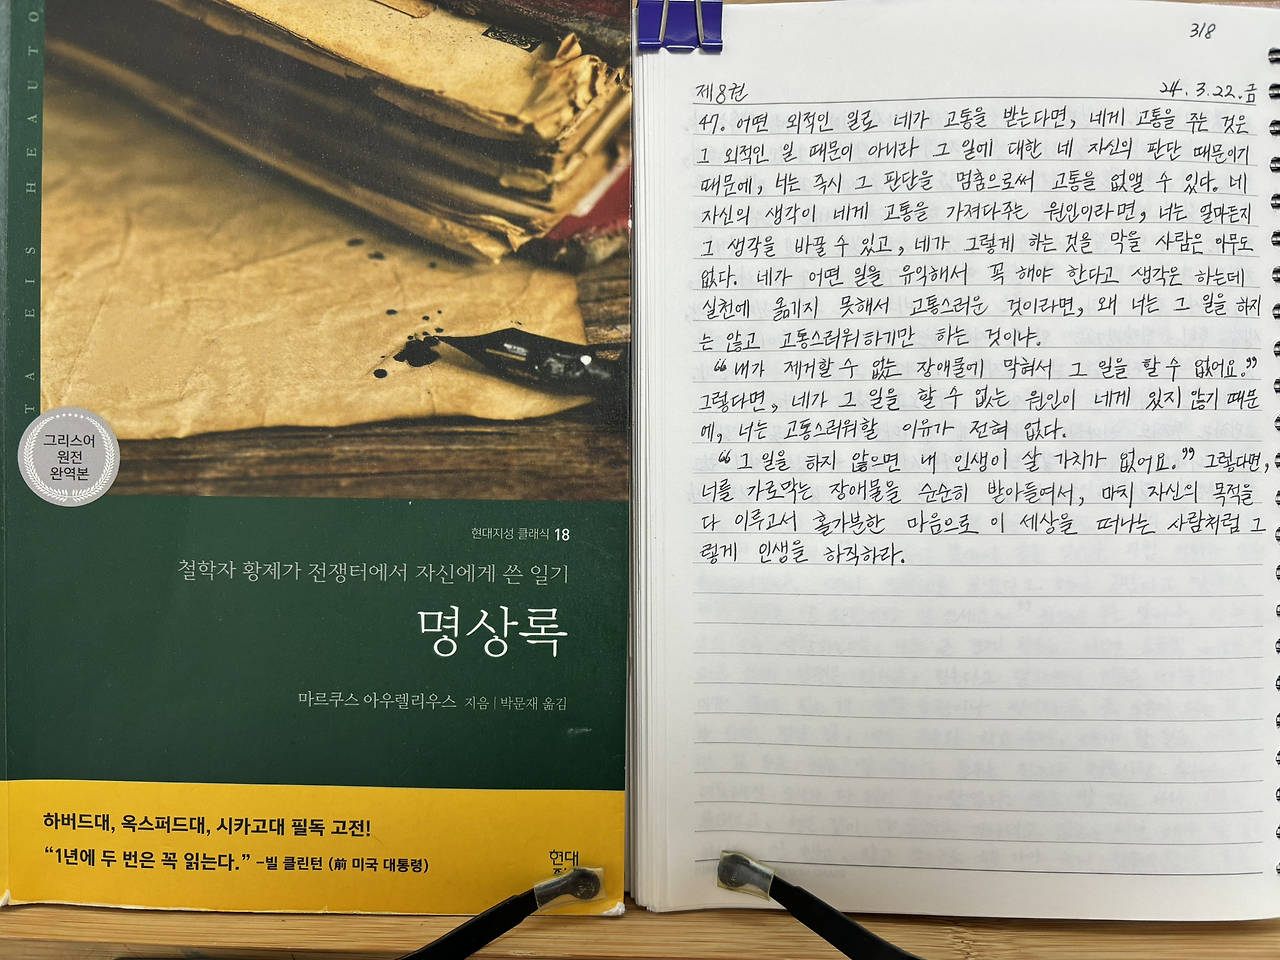 T A E I S H E A U T O
그리스어
원전
완역본
현대지성 클래식 18
철학자 황제가 전쟁터에서 자신에게 쓴 일기
명상록
마르쿠스 아우렐리우스 지음 | 박문재 옮김
하버드대, 옥스퍼드대, 시카고대 필독 고전!
“1년에 두 번은 꼭 읽는다.” –빌 클린턴 (前 미국 대통령)
현대
318
제8권 24.3.22.금
47. 어떤 외적인 일로 네가 고통을 받는다면, 네게 고통을 주는 것은
그 외적인 일 때문이 아니라 그 일에 대한 네 자신의 판단 때문이기
때문에, 너는 즉시 그 판단을 멈춤으로써 고통을 없앨 수 있다. 네
자신의 생각이 네게 고통을 가져다주는 원인이라면, 너는 얼마든지
그 생각을 바꿀 수 있고, 네가 그렇게 하는 것을 막을 사람은 아무도
없다. 네가 어떤 일을 유익해서 꼭 해야 한다고 생각은 하는데
실천에 옮기지 못해서 고통스러운 것이라면, 왜 너는 그 일을 하지
는 않고 고통스러워하기만 하는 것이냐.
“내가 제거할 수 없는 장애물에 막혀서 그 일을 할 수 없어요.”
그렇다면, 네가 그 일을 할 수 없는 원인이 네게 있지 않기 때문
에, 너는 고통스러워할 이유가 전혀 없다.
“그 일을 하지 않으면 내 인생이 살 가치가 없어요.” 그렇다면,
너를 가로막는 장애물을 순순히 받아들여서, 마치 자신의 목적을
다 이루고서 홀가분한 마음으로 이 세상을 떠나는 사람처럼 그
렇게 인생을 하직하라.